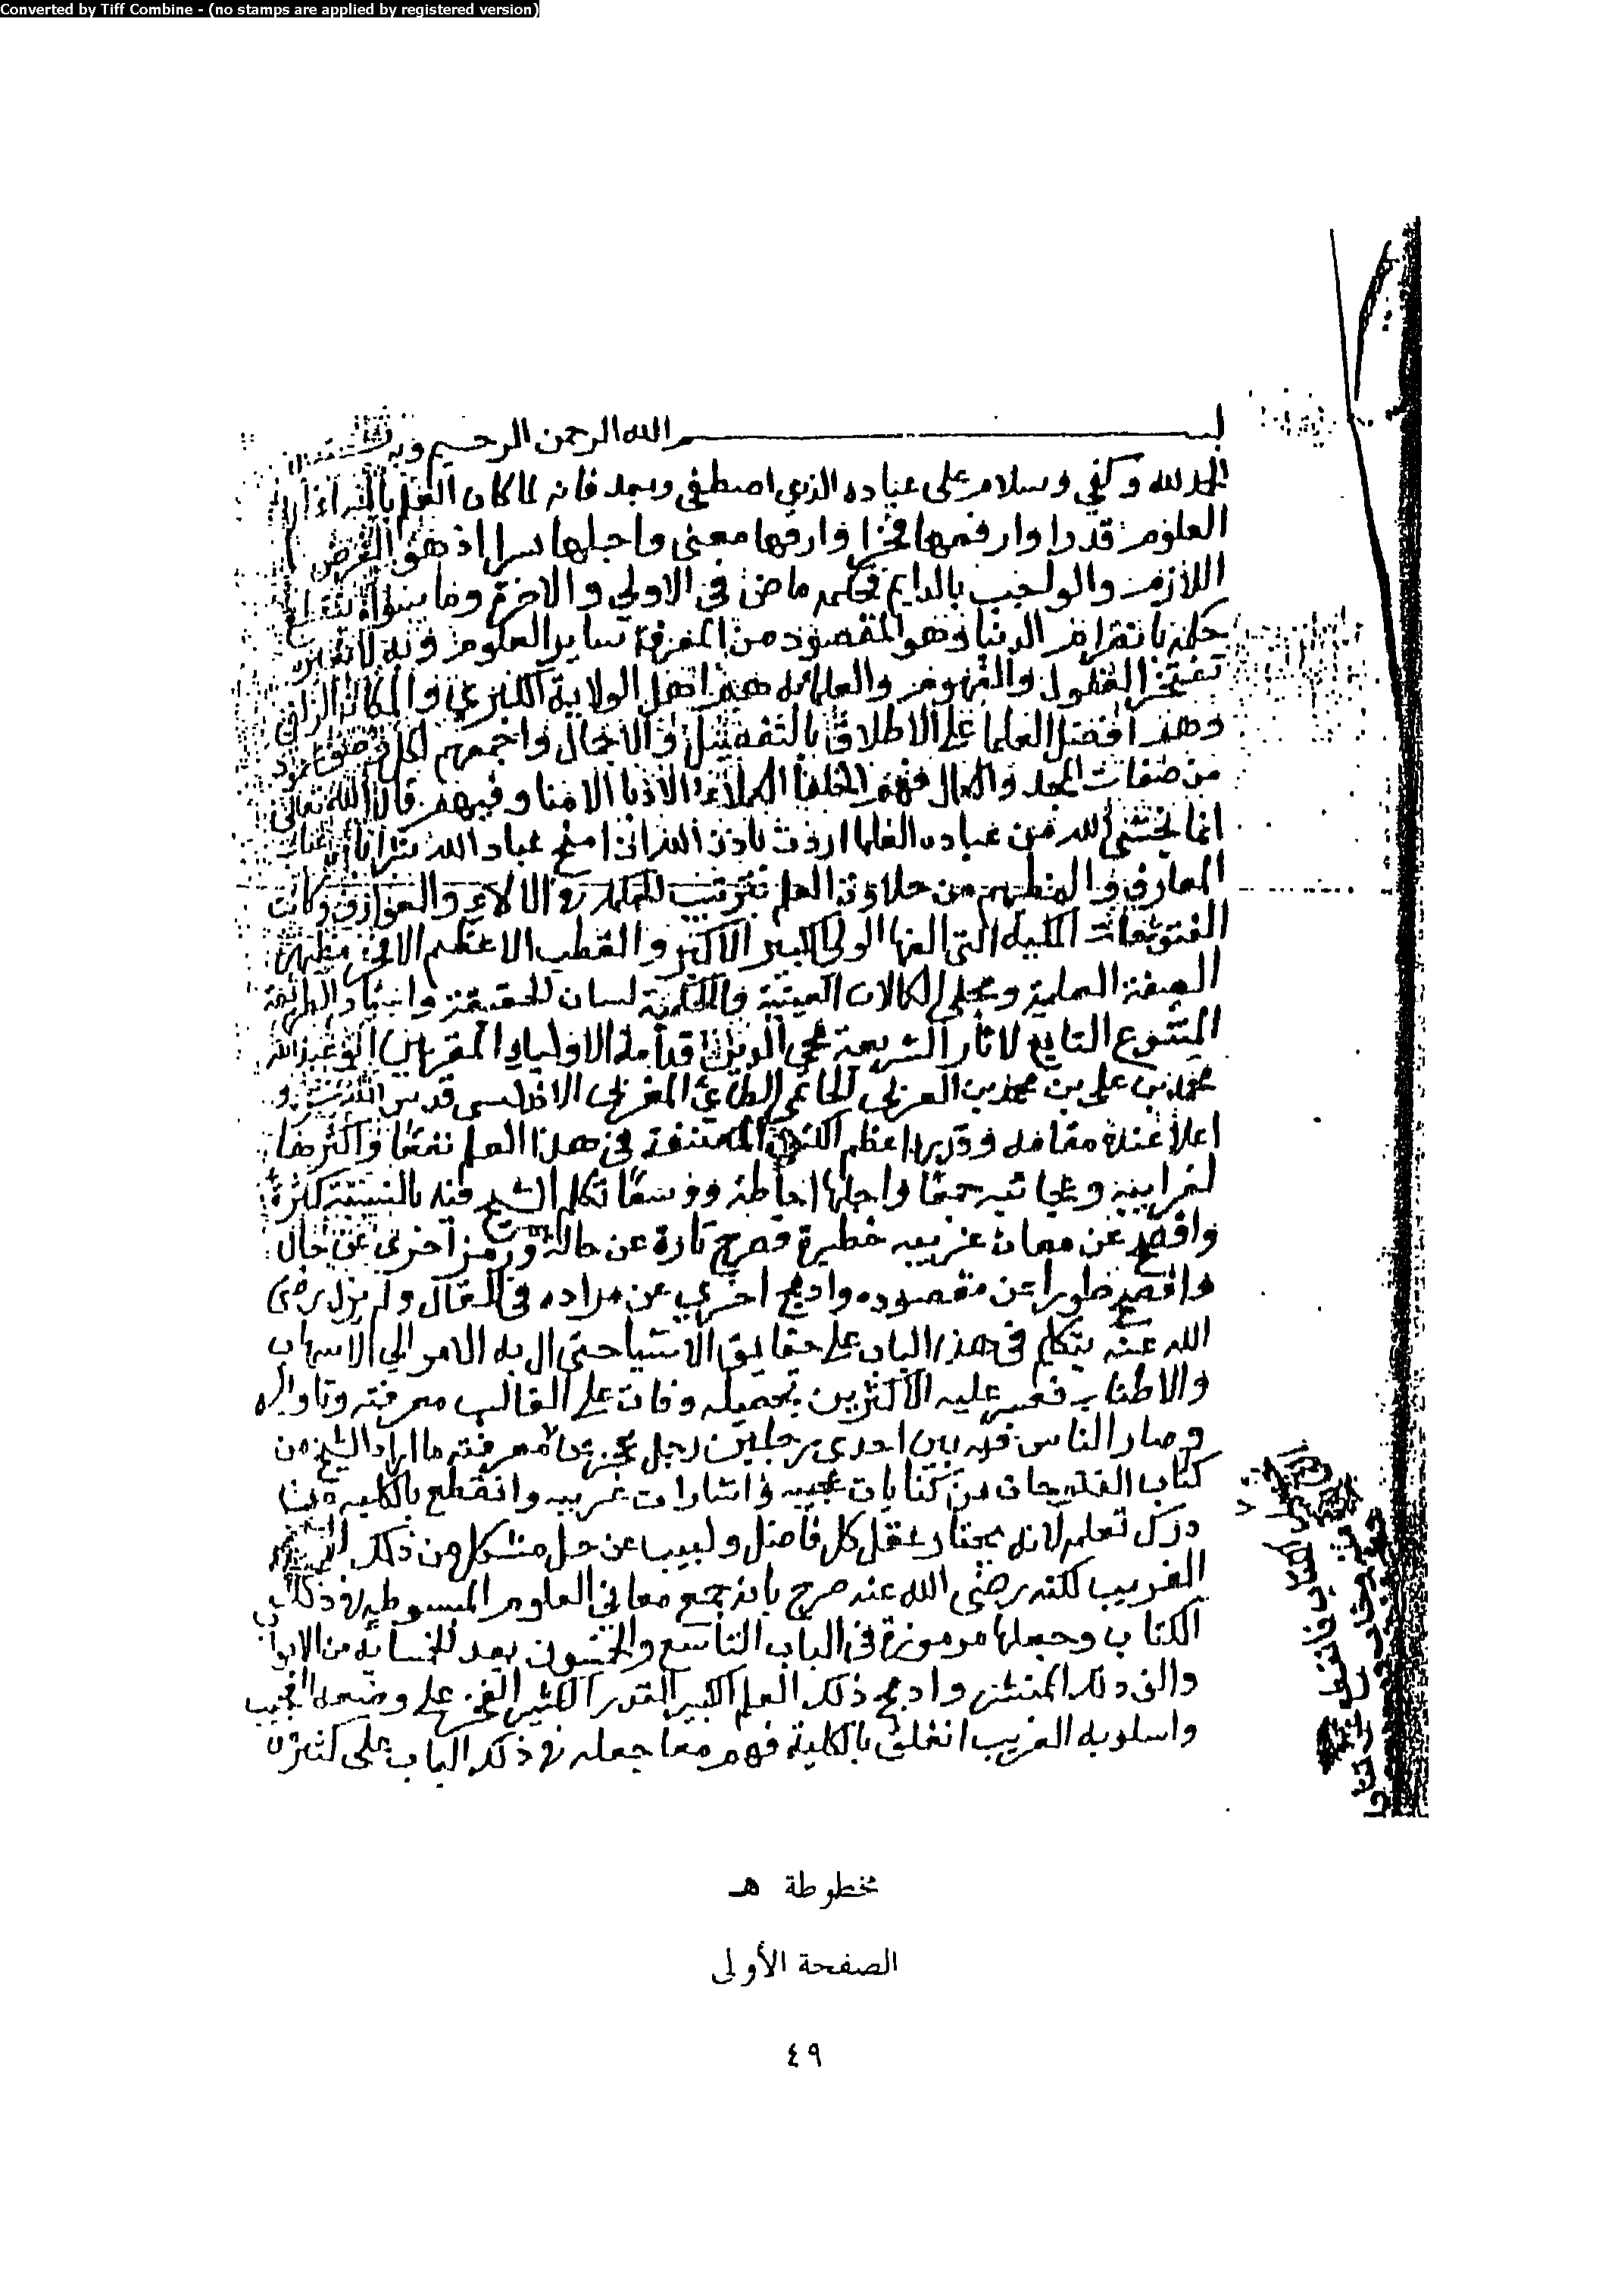 Converted by Tiff Combine - (no stamps are applied by registered version)
بسم الله الرحمن الرحيم وبه
الحمد لله وكفي وسلام على عباده الذي اصطفى وبعد فانه لما كان العلم بالله
العلوم قدرا وارفعها فخرا وارقها معنى واجلها سرا اذ هو الغرض
اللازم والواجب بالدايم في الاولي والاخرة وما سواه
حكمه بانقراض الدنيا وهو المقصود من المعرفة بساير العلوم وبه لا بغيره
تفتخر العقول والفهوم والعلما به هم اهل الولاية الكبري والمكانة
وهم افضل العلما على الاطلاق بالتفصيل والاجمال واجمعهم لكل
من صفات المجد والكمال فهم الخلفا الكملاء الادبا الامنا وفيهم قال الله تعالى
انما يخشى الله من عباده العلما اردت باذن الله ان امنح عباد الله
المعارف والعوارف وكانت
الفتوحات المكيه التى الفها الولى الكبير الاكبر والقطب الاعظم الافخر مظهر
الصفة العلمية ومجلى الكمالات العينية والحكمية لسان الحقيقة واستاد الطريقة
المتبوع التابع لاثار الشريعة محي الدين قدامة الاولياء المقربين ابو عبد الله
محمد بن علي بن محمد بن العربي الحاتمي الطائي المغربي الاندلسي قدس الله سره و
اعلا عنده مقامه وقدره اعظم الكتب المصنفة في هذا العلم نفعا واكثرها
لغرايبه وعجائبه جمعا واجلها احاطة ووسعا تكلم الشيخ فيه بالسنة كثيرة
وافصح عن معان غريبه خطيرة فصرح تارة عن حاله ورمز اخرى عن حال
وافصح طورا عن مقصوده وادمج اخري عن مراده في المقال ولم يزل رضى
الله عنه يتكلم في هذا الباب على حقايق الاشيا حتى ال به الامر الي الاسهاب
والاطناب فعسر عليه الاكثرين تحصيله وفات على الغالب معرفته وتاويله
وصار الناس فيه بين احدى رجلين رجل عجز عن معرفته ما اراد الشيخ من
كتاب الفتوحات من كنايات عجيبه واشارات غريبه وانقطع بالكليه عن
درك تعلمه لانه يحتار عقل كل فاضل ولبيب عن حل مشكل من ذلك
الغريب لكنه رضى الله عنه صرح بانه جمع معاني العلوم المبسوطه في ذلك
الكتاب وجعلها مرموزة في الباب التاسع والخمسون بعد الخمسائه من الابواب
والف ذلك المنثور وادمج ذلك العلم الكبير القدر الكثير الفخر على وضعه العجيب
واسلوبه الغريب انغلق بالكلية فهم ما جعله في ذلك الباب على كثرة
مخطوطة هـ
الصفحة الأولى
٤٩